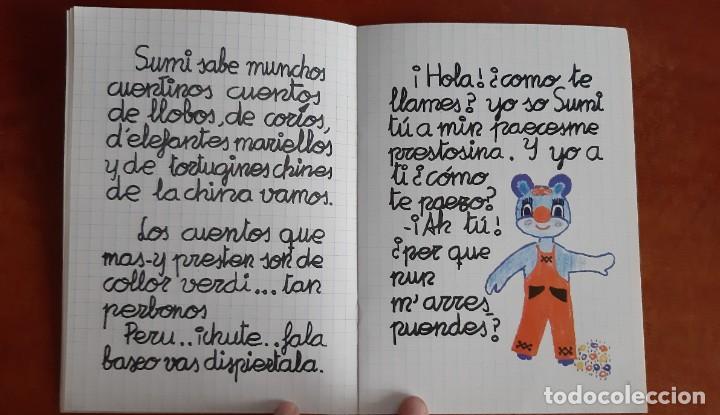 Sumi sabe munchos
cuentinos cuentos
de llobos, de coríos,
d'elefantes mariellos
y de tortugines chines
de la china vamos.
Los cuentos que
mas-y presten son de
collor verdi... tan
perbonos
Peru.. ¡chute.. fala
baxo vas dispiertala.
¡Hola! ¿como te
llames? yo so Sumi
tú a min paecesme
prestosina. Y yo a
ti ¿cómo
te paezo?
-¡Ah tú!
¿por que
nun
m'arres_
puendes?
todocoleccion